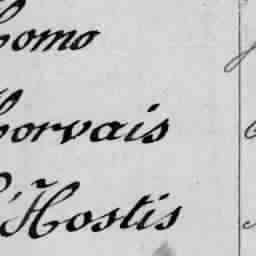 Como
Corvais
L'Hostis